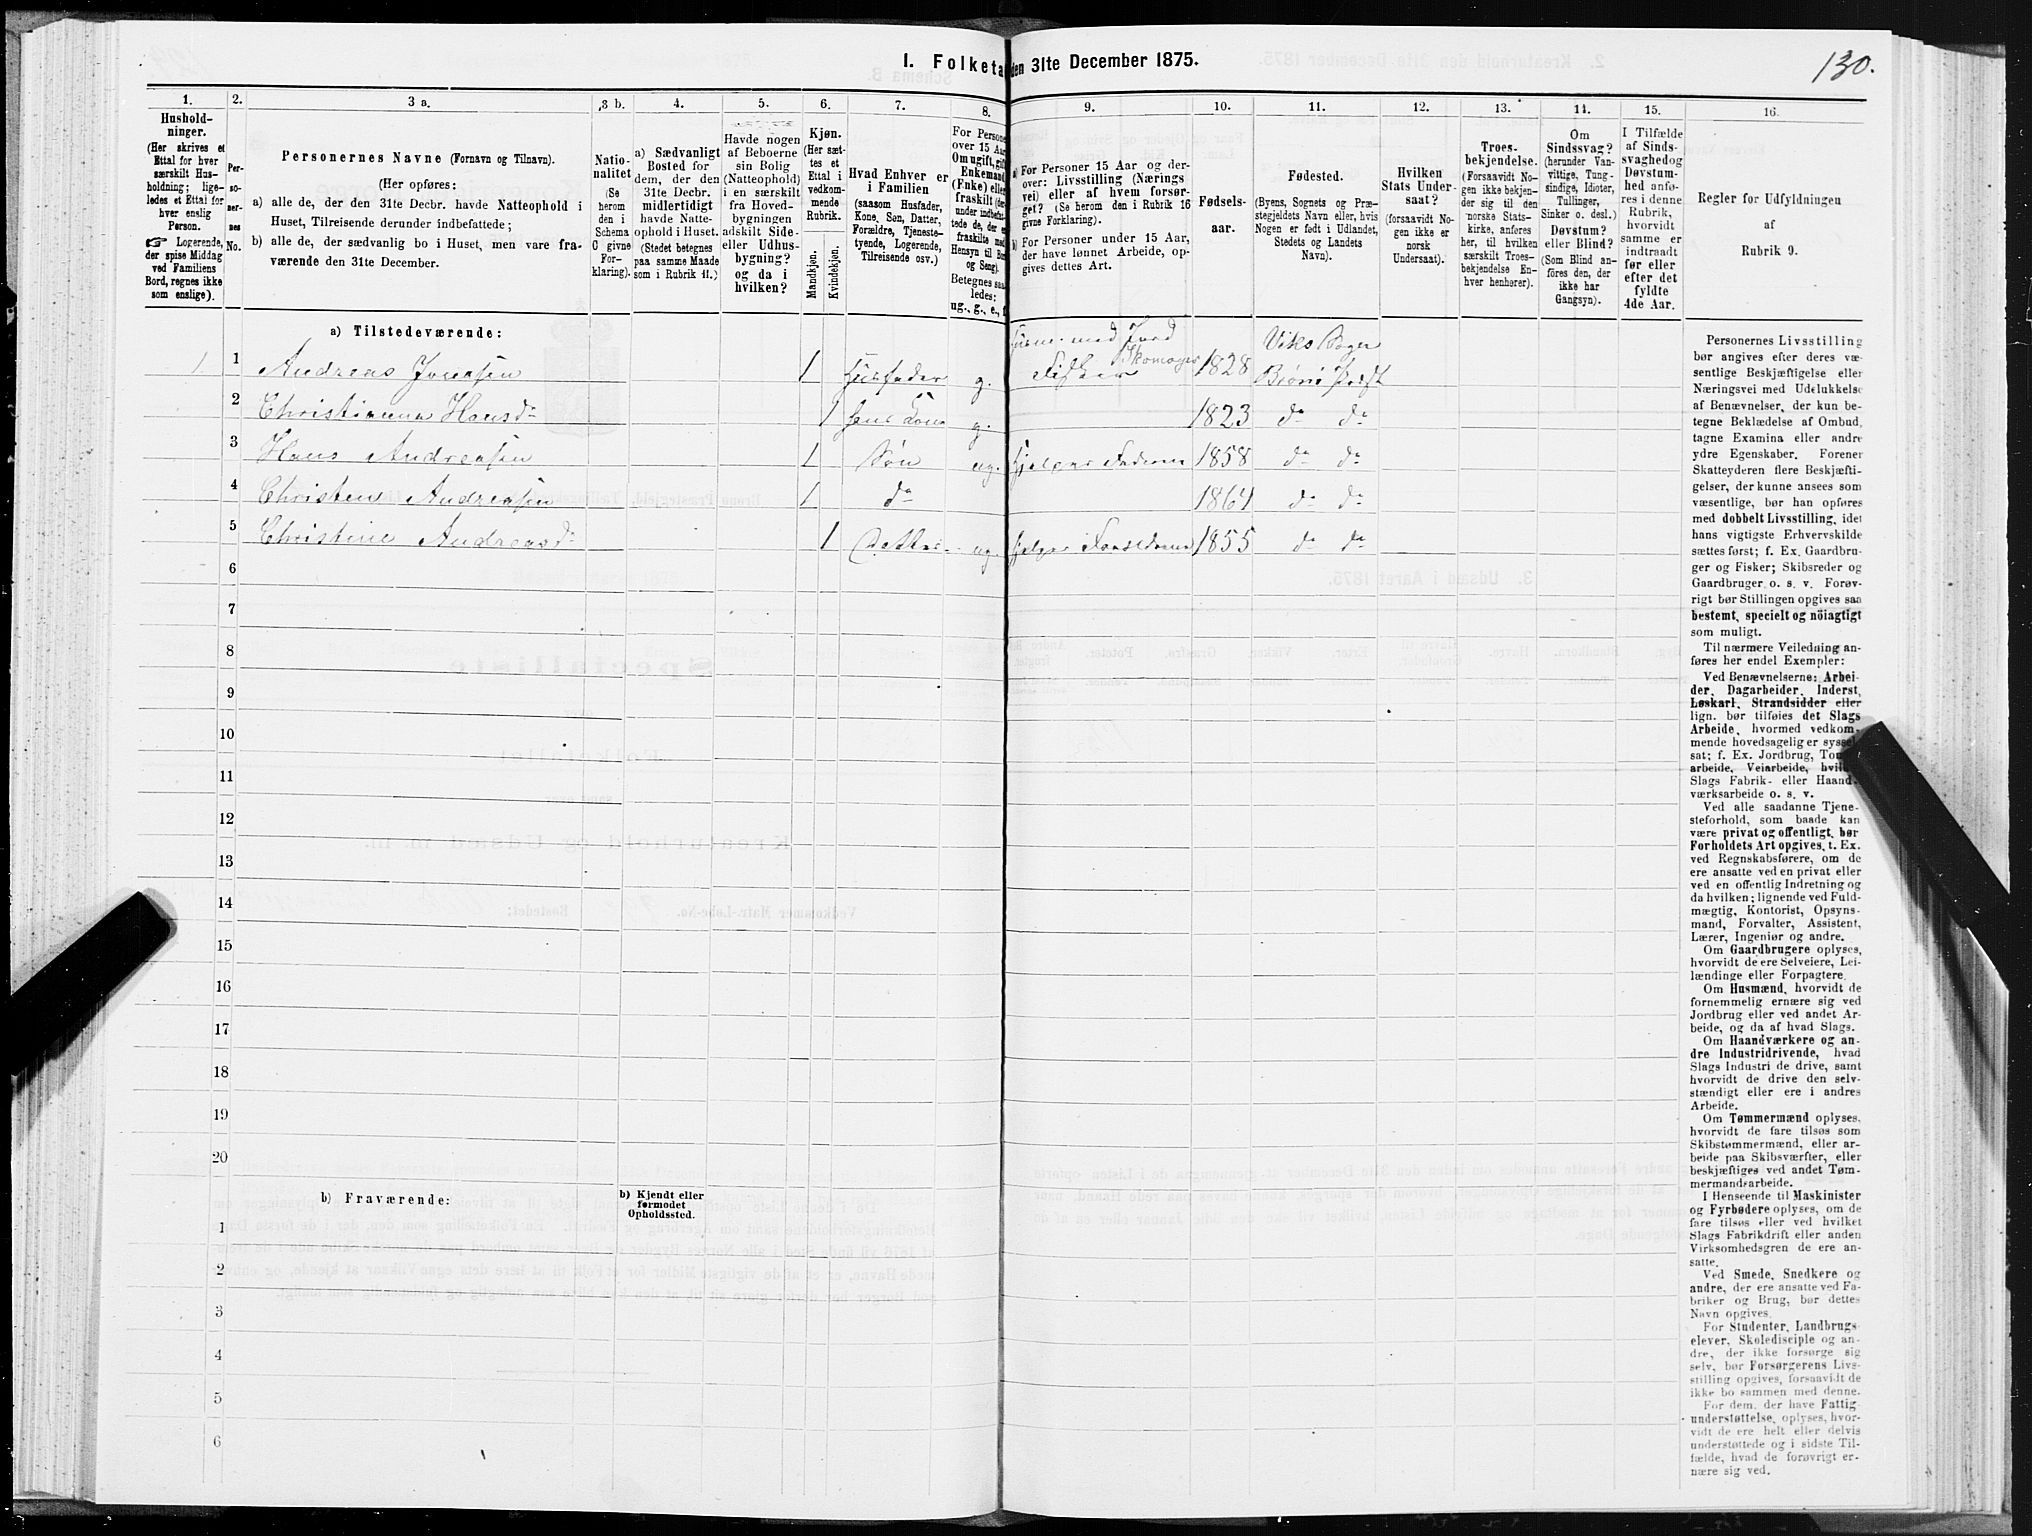 130.
I. Folketa
den 31te December 1875.
1.
2.
3 a.
3 b.
4.
5.
6.
7.
8.
9.
10.
11.
12.
13.
14.
15.
16.
Hushold-
ninger.
(Her skrives et
Ettal for hver
særskilt Hus-
holdning; lige-
ledes et Ettal for
hver enslig
Person.
☞ Logerende,
der spise Middag
ved Familiens
Bord, regnes ikke
som enslige).
Per-
so-
ner-
nes
No.
Personernes Navne (Fornavn og Tilnavn).
(Her opføres:
a) alle de, der den 31te Decbr. havde Natteophold i
Huset, Tilreisende derunder indbefattede;
b) alle de, der sædvanlig bo i Huset, men vare fra-
værende den 31te December.
Natio-
nalitet
(Se
herom
den i
Schema
C givne
For-
klaring).
a) Sædvanligt
Bosted for
dem, der den
31te Decbr.
midlertidigt
havde Natte-
ophold i Huset.
(Stedet betegnes
paa samme Maade
som i Rubrik 11.)
Havde nogen
af Beboerne
sin Bolig
(Natteophold)
i en særskilt
fra Hoved-
bygningen
adskilt Side-
eller Udhus-
bygning?
og da i
hvilken?
Kjøn.
(Her sæt-
tes et
Ettal i
vedkom-
mende
Rubrik.
Mandkjøn.
Kvindekjøn.
Hvad Enhver er
i Familien
(saasom Husfader,
Kone, Søn, Datter,
Forældre, Tjeneste-
tyende, Logerende,
Tilreisende osv.)
For Persone
over 15 Aar
Om ugift, gift
Enkemand
(Enke) elle
fraskilt
Betegnes saa-
ledes:
ug., g., e., f.
a) For Personer 15 Aar og der-
over: Livsstilling (Nærings
vei) eller af hvem forsør-
get? (Se herom den i Rubrik 16
givne Forklaring).
b) For Personer under 15 Aar,
der have lønnet Arbeide, op-
gives dettes Art.
Fødsels-
aar.
Fødested.
(Byens, Sognets og Præ-
stegjeldets Navn eller, hvis
Nogen er født i Udlandet,
Stedets og Landets
Navn).
Hvilken
Stats Under-
saat?
(forsaavidt No-
gen ikke er
norsk
Undersaat).
Troes-
bekjendelse.
(Forsaavidt No-
gen ikke bekjen-
der sig til den
norske Stats-
kirke, anføres
her, til hvilken
særskilt Troes-
bekjendelse En-
hver henhører).
Om
Sindssvag?
(herunder Van-
vittige, Tung-
sindige, Idioter,
Tullinger,
Sinker o. desl.)
Døvstum?
eller Blind?
(Som Blind an-
føres den, der
ikke har
Gangsyn).
I Tilfælde
af Sinds-
svaghed og
Døvstum-
hed anfø-
res i denne
Rubrik,
hvorvidt
samme er
indtraadt
før eller
efter det
fyldte
4de Aar.
Regler for Udfyldningen
af
Rubrik 9.
a) Tilstedeværende:
1 1 Andreas Iversen 1 Husfader g. Huusm. med Jord Fisker Skomager 1828 Viks Sogn Brønø Præst
2 Christianna Hansdr 1 hans Kone g. 1823 do do
3 Hans Andreasen 1 Søn ug. hjelper Faderen 1858 do do
4 Christen Andreasen 1 do 1864 do do
5 Christine Andreasdr 1 Datter ug. hjelper Forældrene 1855 do do
6
7
8
9
10
11
12
13
14
15
16
17
18
19
20
b) Fraværende:
b) Kjendt eller
formodet
Opholdssted.
1
2
3
4
5
6
Personernes Livsstilling
bør angives efter deres væ-
sentlige Beskjæftigelse eller
Næringsvei med Udelukkelse
af Benævnelser, der kun be-
tegne Beklædelse af Ombud,
tagne Examina eller andre
ydre Egenskaber. Forener
Skatteyderen flere Beskjæfti-
gelser, der kunne ansees som
væsentlige, bør han opføres
med dobbelt Livsstilling, idet
hans vigtigste Erhvervskilde
sættes først; f. Ex. Gaardbru-
ger og Fisker; Skibsreder og
Gaardbruger o. s. v. Forøv-
rigt bør Stillingen opgives saa
bestemt, specielt og nøiagtigt
som muligt.
Til nærmere Veiledning an-
føres her endel Exempler:
Ved Benævnelserne: Arbei-
der, Dagarbeider, Inderst,
Løskarl, Strandsidder eller
lign. bør tilføies det Slags
Arbeide, hvormed vedkom-
mende hovedsagelig er syssel-
sat; f. Ex. Jordbrug, Tom
arbeide, Veiarbeide, hvil
Slags Fabrik- eller Haand-
værksarbeide o. s. v.
Ved alle saadanne Tjene-
steforhold, som baade kan
være privat og offentligt, bør
Forholdets Art opgives, t. Ex.
ved Regnskabsførere, om de
ere ansatte ved en privat eller
ved en offentlig Indretning og
da hvilken; lignende ved Fuld-
mægtig, Kontorist, Opsyns-
mand, Forvalter, Assistent,
Lærer, Ingeniør og andre.
Om Gaardbrugere oplyses,
hvorvidt de ere Selveiere, Lei-
lændinge eller Forpagtere.
Om Husmænd, hvorvidt de
fornemmelig ernære sig ved
Jordbrug eller ved andet Ar-
beide, og da af hvad Slags.
Om Haandværkere og an-
dre Industridrivende, hvad
Slags Industri de drive, samt
hvorvidt de drive den selv-
stændigt eller ere i andres
Arbeide.
Om Tømmermænd oplyses,
hvorvidt de fare tilsøs som
Skibstømmermænd, eller ar-
beide paa Skibsværfter, eller
beskjæftiges ved andet Tøm-
mermandsarbeide.
I Henseende til Maskinister
og Fyrbødere oplyses, om de
fare tilsøs eller ved hvilket
Slags Fabrikdrift eller anden
Virksomhedsgren de ere an-
satte.
Ved Smede, Snedkere og
andre, der ere ansatte ved Fa-
briker og Brug, bør dettes
Navn opgives.
For Studenter, Landbrugs-
elever, Skoledisciple og an-
dre, der ikke forsørge sig
selv, bør Forsørgerens Livs-
stilling opgives, forsaavidt de
ikke bo sammen med denne.
For dem, der have Fattig-
understøttelse, oplyses, hvor-
vidt de ere helt eller delvis
understøttede og i sidste Til-
fælde, hvad de forøvrigt er-
nære sig ved.